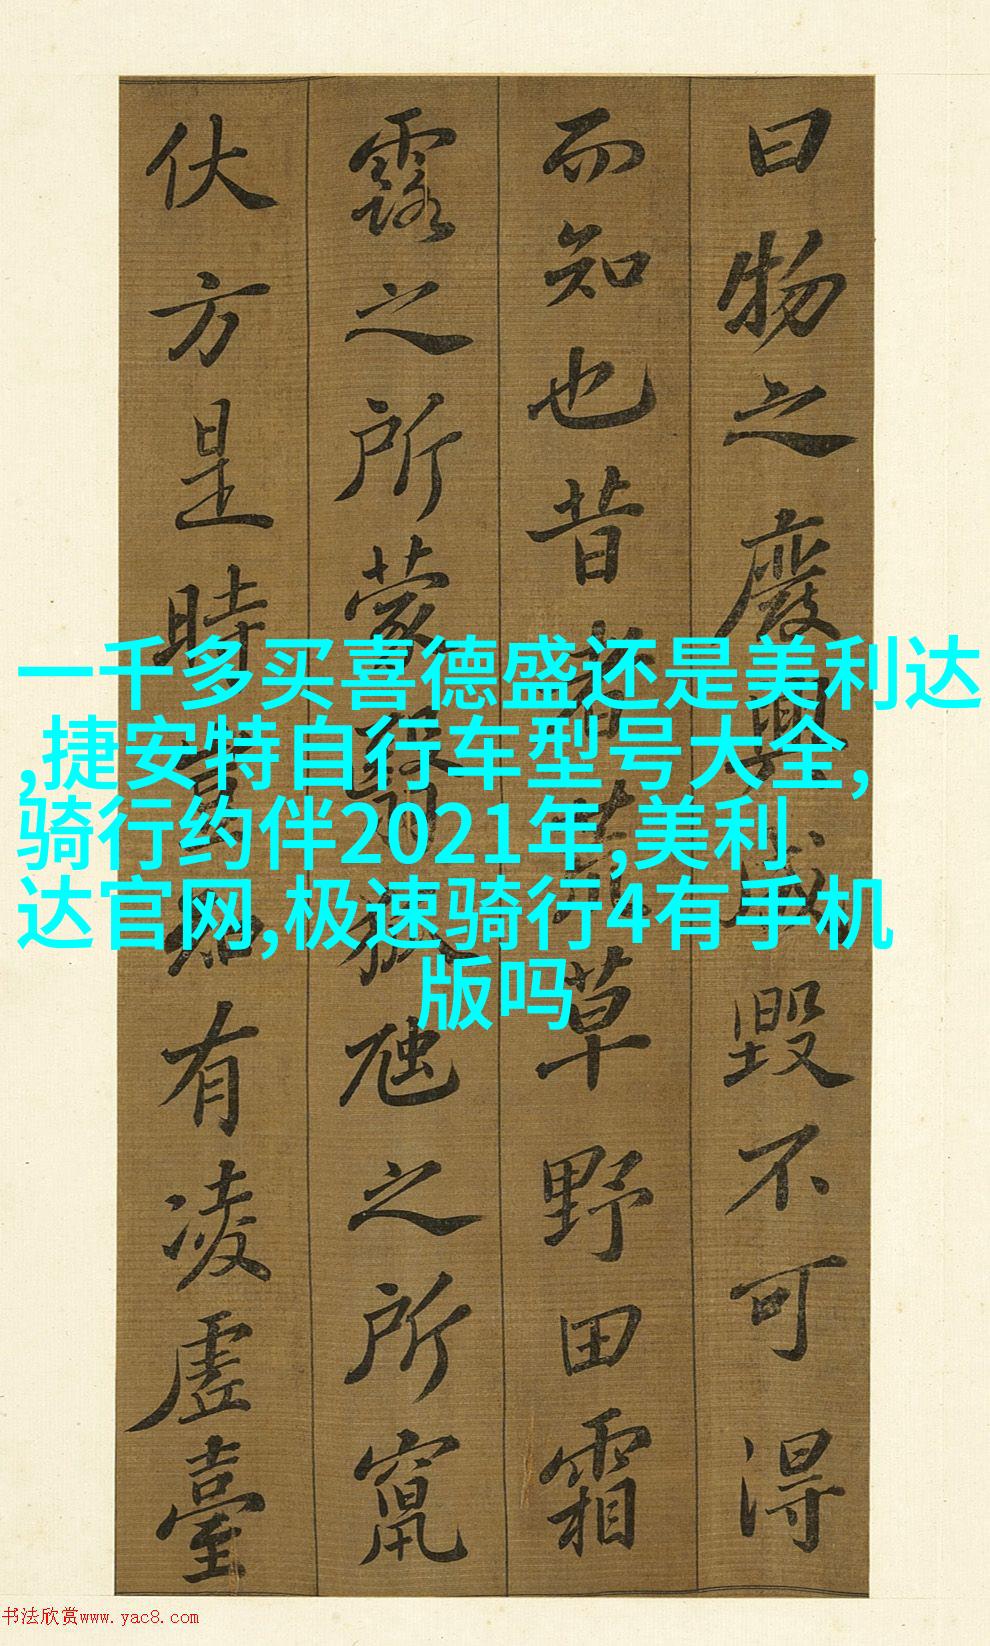 曰物之廢興成毀不可得
而知也昔者荒草野田霜
露之所蒙翳狐虺之所竄
伏方是時豈知有凌虛臺
一千多买喜德盛还是美利达
,捷安特自行车型号大全,
骑行约伴2021年,美利
达官网,极速骑行4有手机
版吗
书法欣赏www.yac8.com